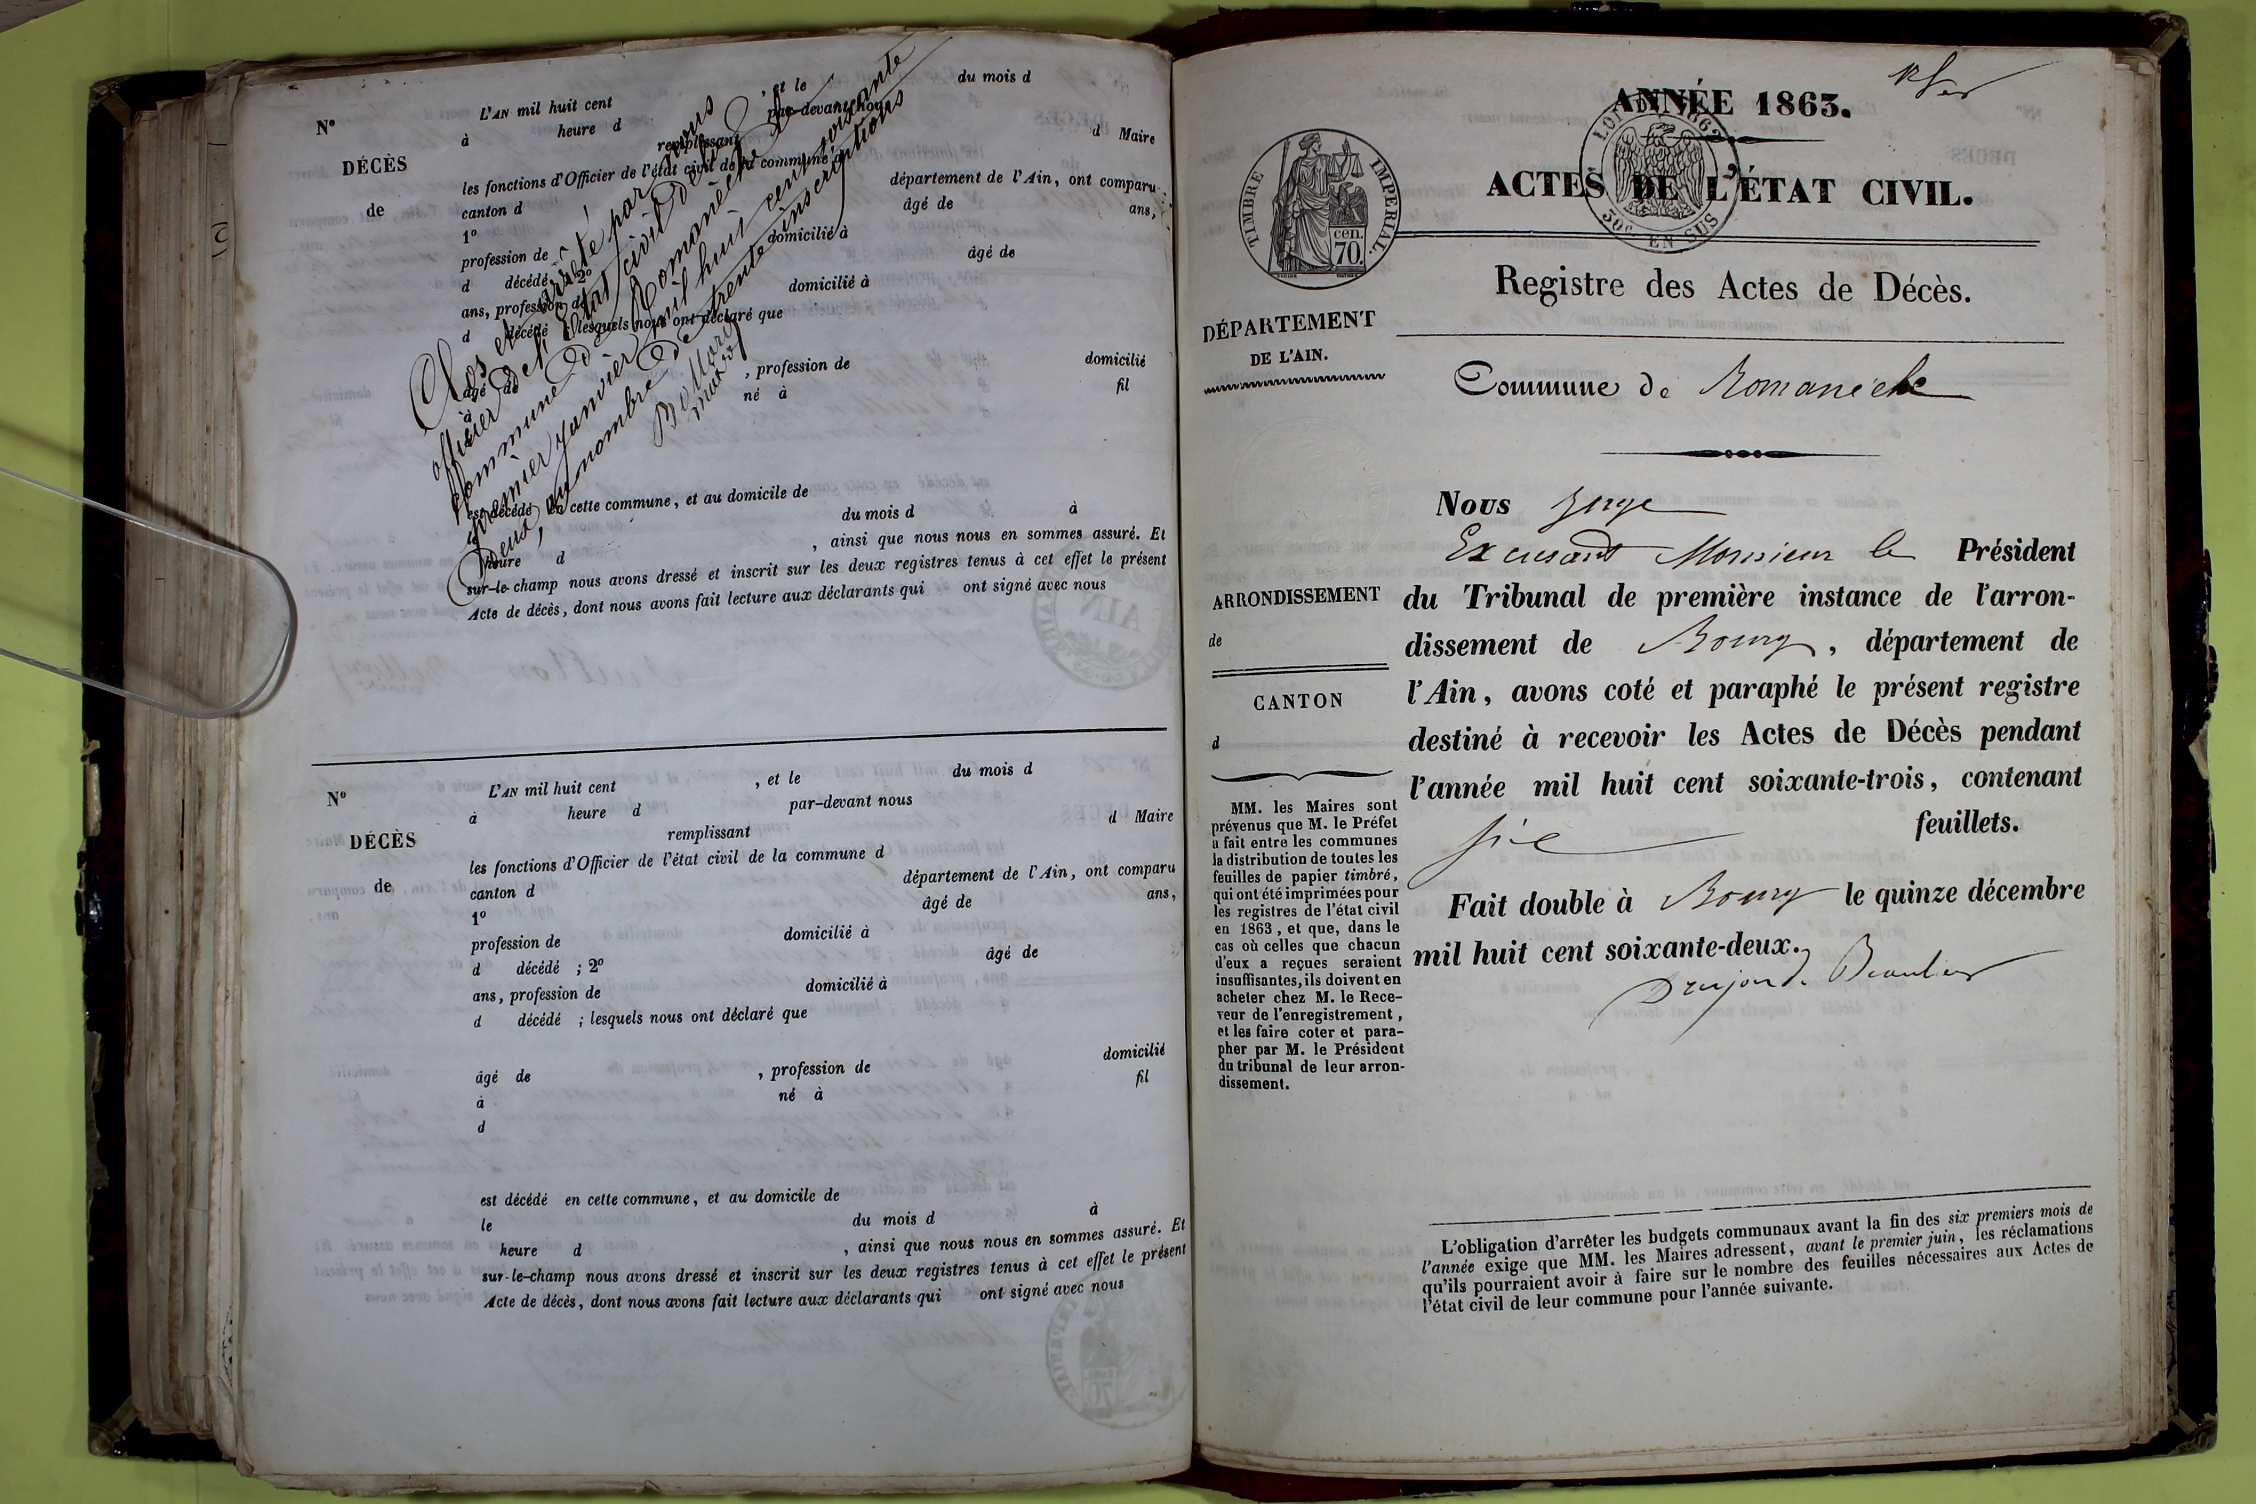 L'AN mil huit cent , et le du mois d
N° à heure d par-devant nous
remplissant d Maire
DÉCÈS les fonctions d'Officier de l'état civil de la commune d
de canton d département de l'Ain, ont comparu :
1° âgé de ans,
profession de domicilié à
d décédé ; 2° âgé de
ans, profession de domicilié à
d décédé ; lesquels nous ont déclaré que
âgé de , profession de domicilié
à né à fil
Clos et arrêté par nous
officier de l'état civil de la
commune de Romanèche le
premier janvier mil huit cent soixante
deux, au nombre de trente inscriptions
est décédé en cette commune, et au domicile de
le du mois d à
heure d , ainsi que nous nous en sommes assuré. Et
sur-le-champ nous avons dressé et inscrit sur les deux registres tenus à cet effet le présent
Acte de décès, dont nous avons fait lecture aux déclarants qui ont signé avec nous
L'AN mil huit cent , et le du mois d
N° à heure d par-devant nous
remplissant d Maire
DÉCÈS les fonctions d'Officier de l'état civil de la commune d
de canton d département de l'Ain, ont comparu
1° âgé de ans,
profession de domicilié à
d décédé ; 2° âgé de
ans, profession de domicilié à
d décédé ; lesquels nous ont déclaré que
âgé de , profession de domicilié
à né à fil
d
est décédé en cette commune, et au domicile de
le du mois d à
heure d , ainsi que nous nous en sommes assuré. Et
sur-le-champ nous avons dressé et inscrit sur les deux registres tenus à cet effet le présent
Acte de décès, dont nous avons fait lecture aux déclarants qui ont signé avec nous
ANNÉE 1863.
LOI DE 1862
30c EN SUS
TIMBRE IMPERIAL.
cen.
70.
ACTES DE L'ÉTAT CIVIL.
Registre des Actes de Décès.
DÉPARTEMENT
DE L'AIN.
Commune de Romanèche
Nous Juge
Excusant Monsieur le Président
du Tribunal de première instance de l'arron-
dissement de Bourg, département de
l'Ain, avons coté et paraphé le présent registre
destiné à recevoir les Actes de Décès pendant
l'année mil huit cent soixante-trois, contenant
six feuillets.
Fait double à Bourg le quinze décembre
mil huit cent soixante-deux.
ARRONDISSEMENT
de
CANTON
d
MM. les Maires sont
prévenus que M. le Préfet
a fait entre les communes
la distribution de toutes les
feuilles de papier timbré,
qui ont été imprimées pour
les registres de l'état civil
en 1863, et que, dans le
cas où celles que chacun
d'eux a reçues seraient
insuffisantes, ils doivent en
acheter chez M. le Rece-
veur de l'enregistrement,
et les faire coter et para-
pher par M. le Président
du tribunal de leur arron-
dissement.
L'obligation d'arrêter les budgets communaux avant la fin des six premiers mois de
l'année exige que MM. les Maires adressent, avant le premier juin, les réclamations
qu'ils pourraient avoir à faire sur le nombre des feuilles nécessaires aux Actes de
l'état civil de leur commune pour l'année suivante.